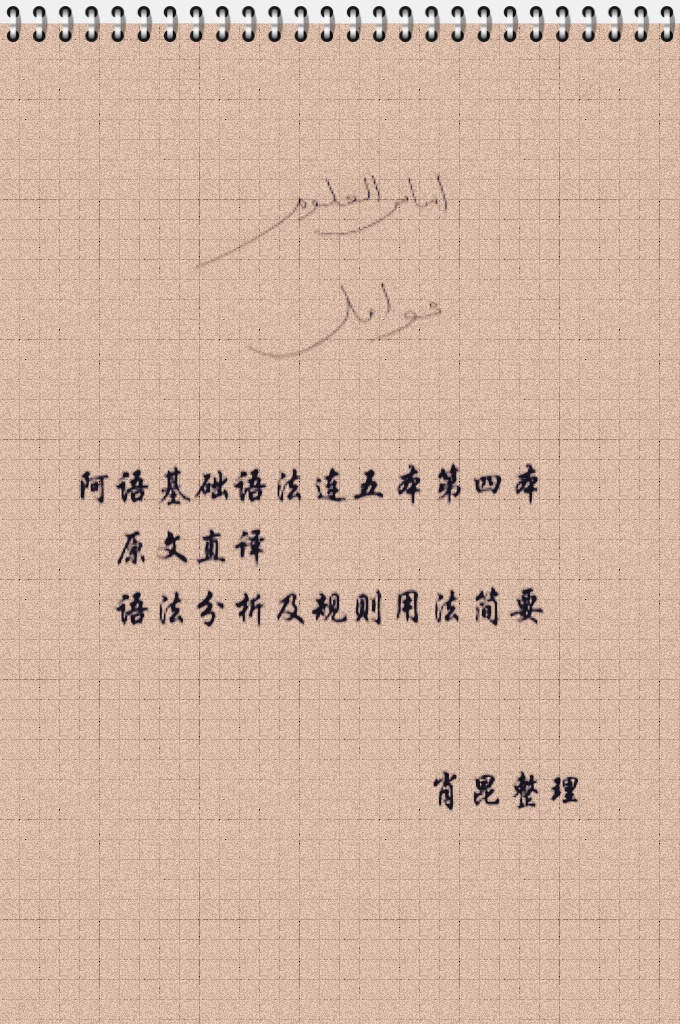 اساس العلوم
عوامل
阿语基础语法连五本第四本
原文直译
语法分析及规则用法简要
肖昆整理